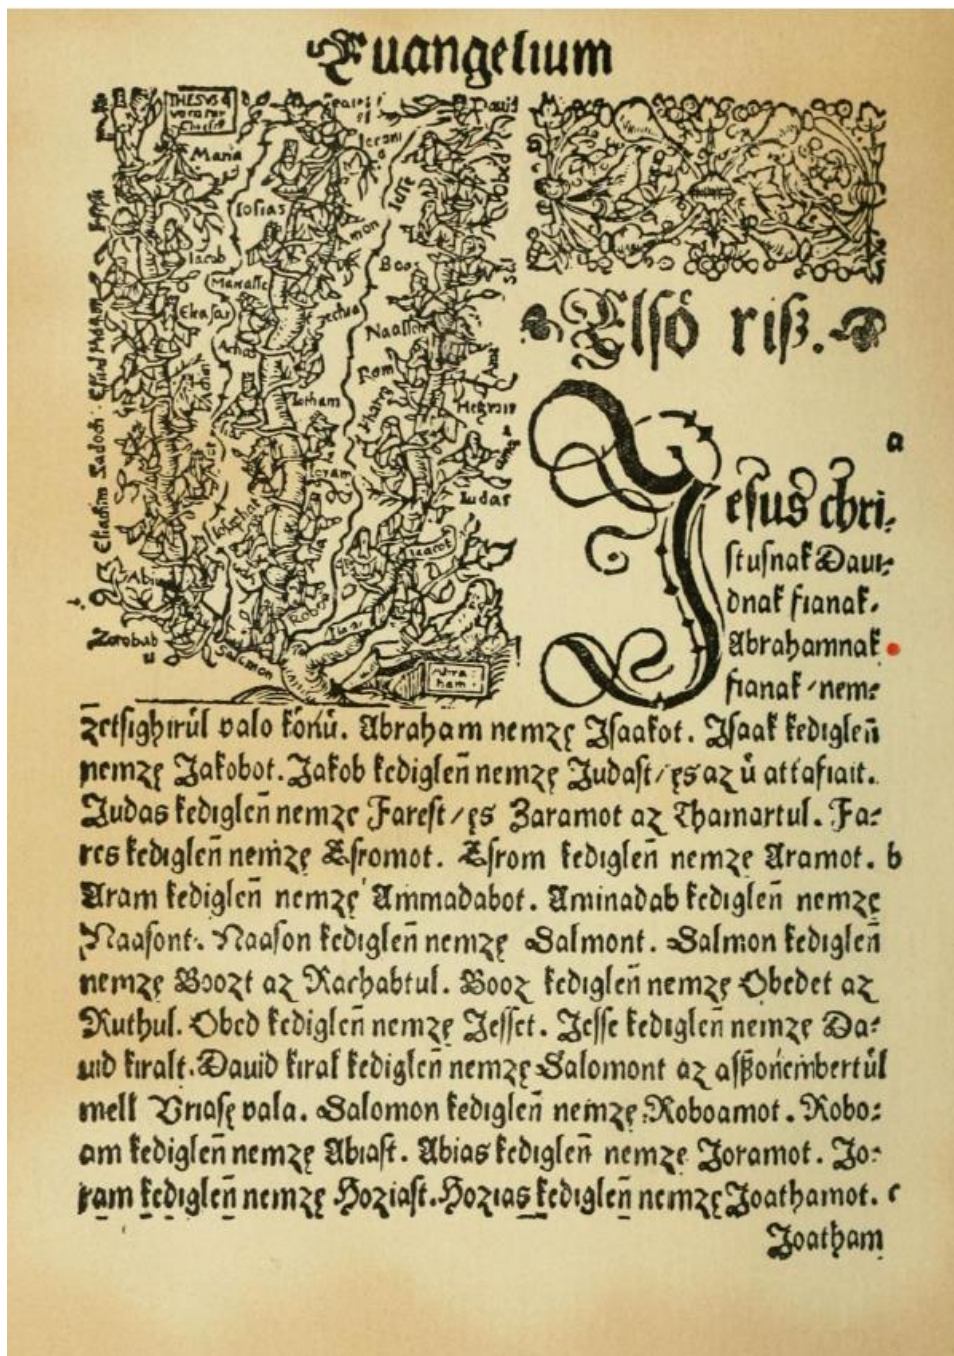 Euangelium
THESVS q
vocatur
Christ
Maria
Dauid
Obed
Iosias
Iesse
Amon
Iacob
Boos
Manasse
Eleasar
Naasson
Achas
Rom
Iotham
Iudas
Ioram
Iosaphat
Eliachim Sadoch Eliud
Isaac
Abiu
Roboa
Zorobab
Salomon
Abra
ham
Elsó riß.
a
Jesus chri⸗
stusnak Daui⸗
dnak fianak.
Abrahamnak
fianak / nem⸗
zetsighirúl valo kónú. Abraham nemzę Isaakot. Isaak kediglen̄
nemzę Jakobot. Jakob kediglen̄ nemzę Judast / ęs az ú attafiait.
Judas kediglen̄ nemzę Farest / ęs Zaramot az Thamartul. Fa⸗
res kediglen̄ nemzę Esromot. Esrom kediglen̄ nemzę Aramot. b
Aram kediglen̄ nemzę Ammadabot. Aminadab kediglen̄ nemzę
Naasont. Naason kediglen̄ nemzę Salmont. Salmon kediglen̄
nemzę Boozt az Rachabtul. Booz kediglen̄ nemzę Obedet az
Ruthul. Obed kediglen̄ nemzę Jesset. Jesse kediglen̄ nemzę Da⸗
uid kiralt. Dauid kiral kediglen̄ nemzę Salomont az aßßońembertúl
mell Vriasę vala. Salomon kediglen̄ nemzę Roboamot. Robo⸗
am kediglen̄ nemzę Abiast. Abias kediglen̄ nemzę Joramot. Jo⸗
ram kediglen̄ nemzę Hoziast. Hozias kediglen̄ nemzę Joathamot. c
Joatham